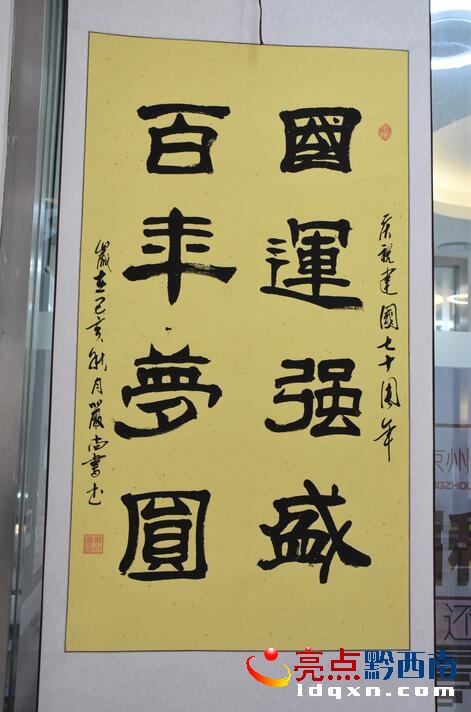 慶祝建國七十周年
國運强盛
百年夢圓
歲在己亥秋月嚴尚書
亮点黔西南
ldqxn.com